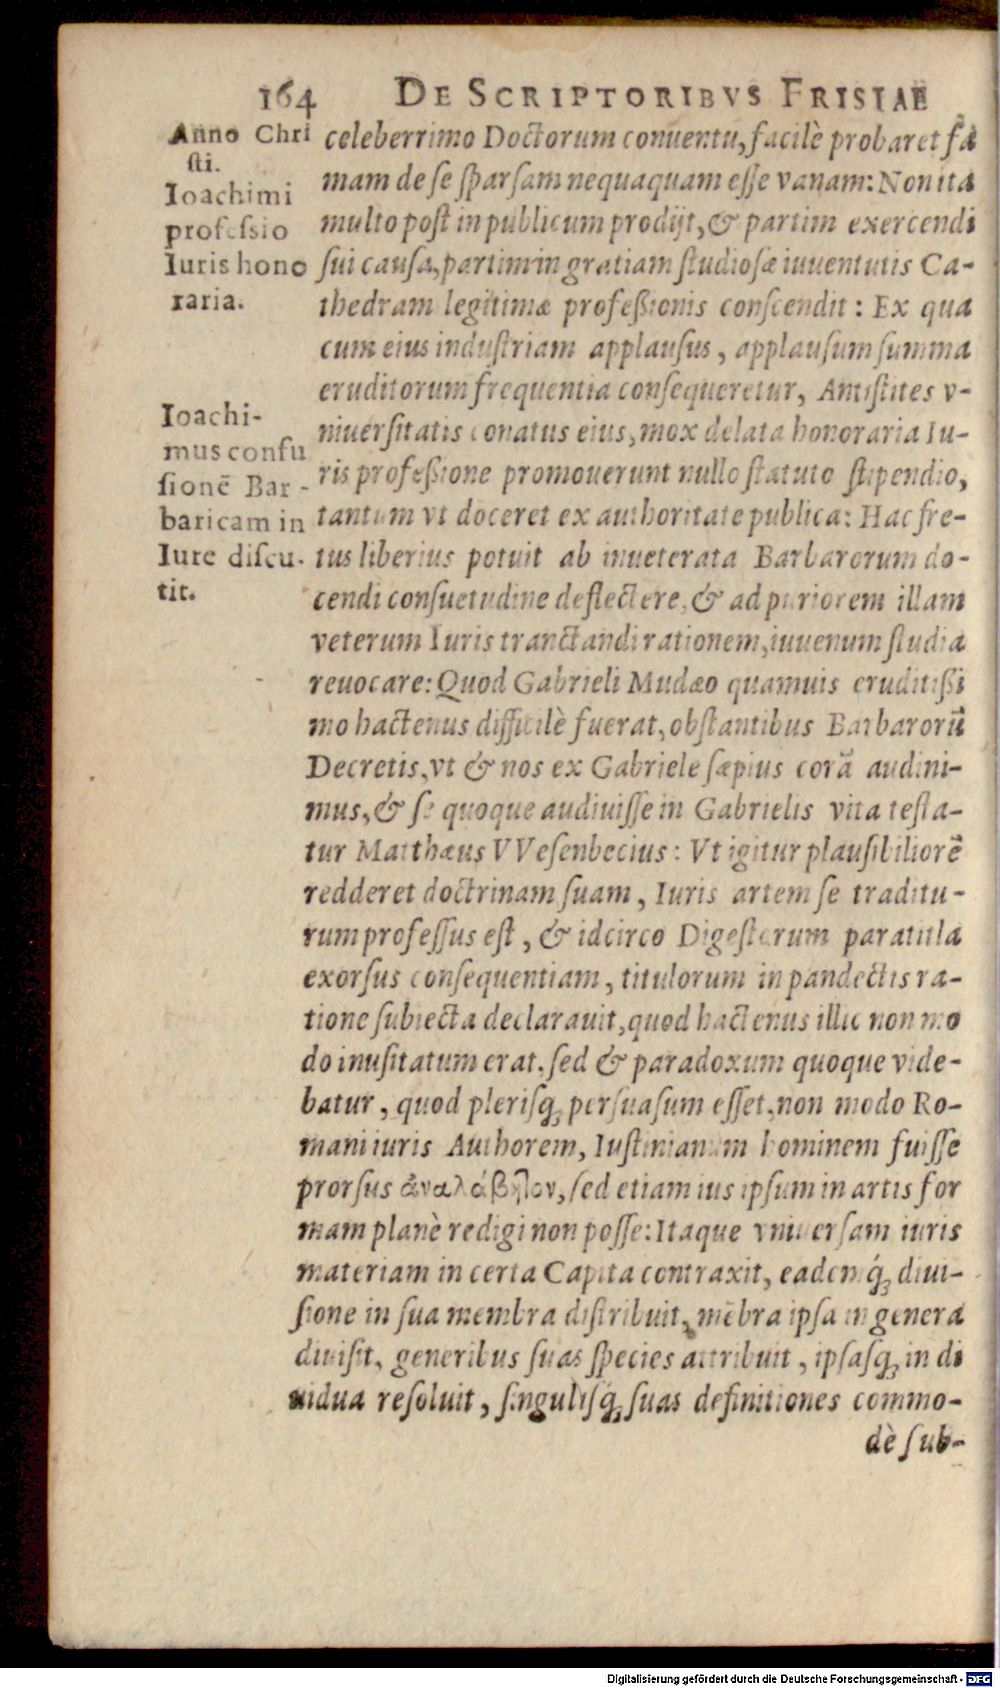 164 DE SCRIPTORIBVS FRISIAE
Anno Chri
sti.
Ioachimi
professio
Iuris hono
raria.
Ioachi-
mus confu
sionē Bar-
baricam in
Iure discu-
tit.
celeberrimo Doctorum conuentu, facilè probaret fa
mam de se sparsam nequaquam esse vanam: Non ita
multo post in publicum prodijt, & partim exercendi
sui causa, partim in gratiam studiosæ iuuentutis Ca-
thedram legitimæ professionis conscendit: Ex qua
cum eius industriam applausus, applausum summa
eruditorum frequentia consequeretur, Antistites v-
niuersitatis conatus eius, mox delata honoraria Iu-
ris professione promouerunt nullo statuto stipendio,
tantum vt doceret ex authoritate publica: Hac fre-
tus liberius potuit ab inueterata Barbarorum do-
cendi consuetudine deflectere, & ad puriorem illam
veterum Iuris tranctandi rationem, iuuenum studia
reuocare: Quod Gabrieli Mudæo quamuis eruditissi
mo hactenus difficilè fuerat, obstantibus Barbarorū
Decretis, vt & nos ex Gabriele sæpius corā audini-
mus, & se quoque audiuisse in Gabrielis vita testa-
tur Matthæus VVesenbecius: Vt igitur plausibiliorē
redderet doctrinam suam, Iuris artem se traditu-
rum professus est, & idcirco Digestorum paratitla
exorsus consequentiam, titulorum in pandectis ra-
tione subiecta declarauit, quod hactenus illic non mo
do inusitatum erat, sed & paradoxum quoque vide-
batur, quod plerisq; persuasum esset, non modo Ro-
mani iuris Authorem, Iustinianum hominem fuisse
prorsus ἀναλάβητον, sed etiam ius ipsum in artis for
mam planè redigi non posse: Itaque vniuersam iuris
materiam in certa Capita contraxit, eademq́; diui-
sione in sua membra distribuit, mēbra ipsa in genera
diuisit, generibus suas species attribuit, ipsasq; in di
uidua resoluit, singulisq́; suas definitiones commo-
dè sub-
Digitalisierung gefördert durch die Deutsche Forschungsgemeinschaft - DFG